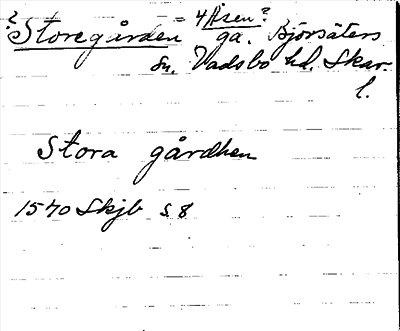 ? Storegården = 4 Åsen?
ga. Björsäters
sn. Vadsbo hd. Skar.
l.
Stora gårdhen
1570 Skjb s. 8